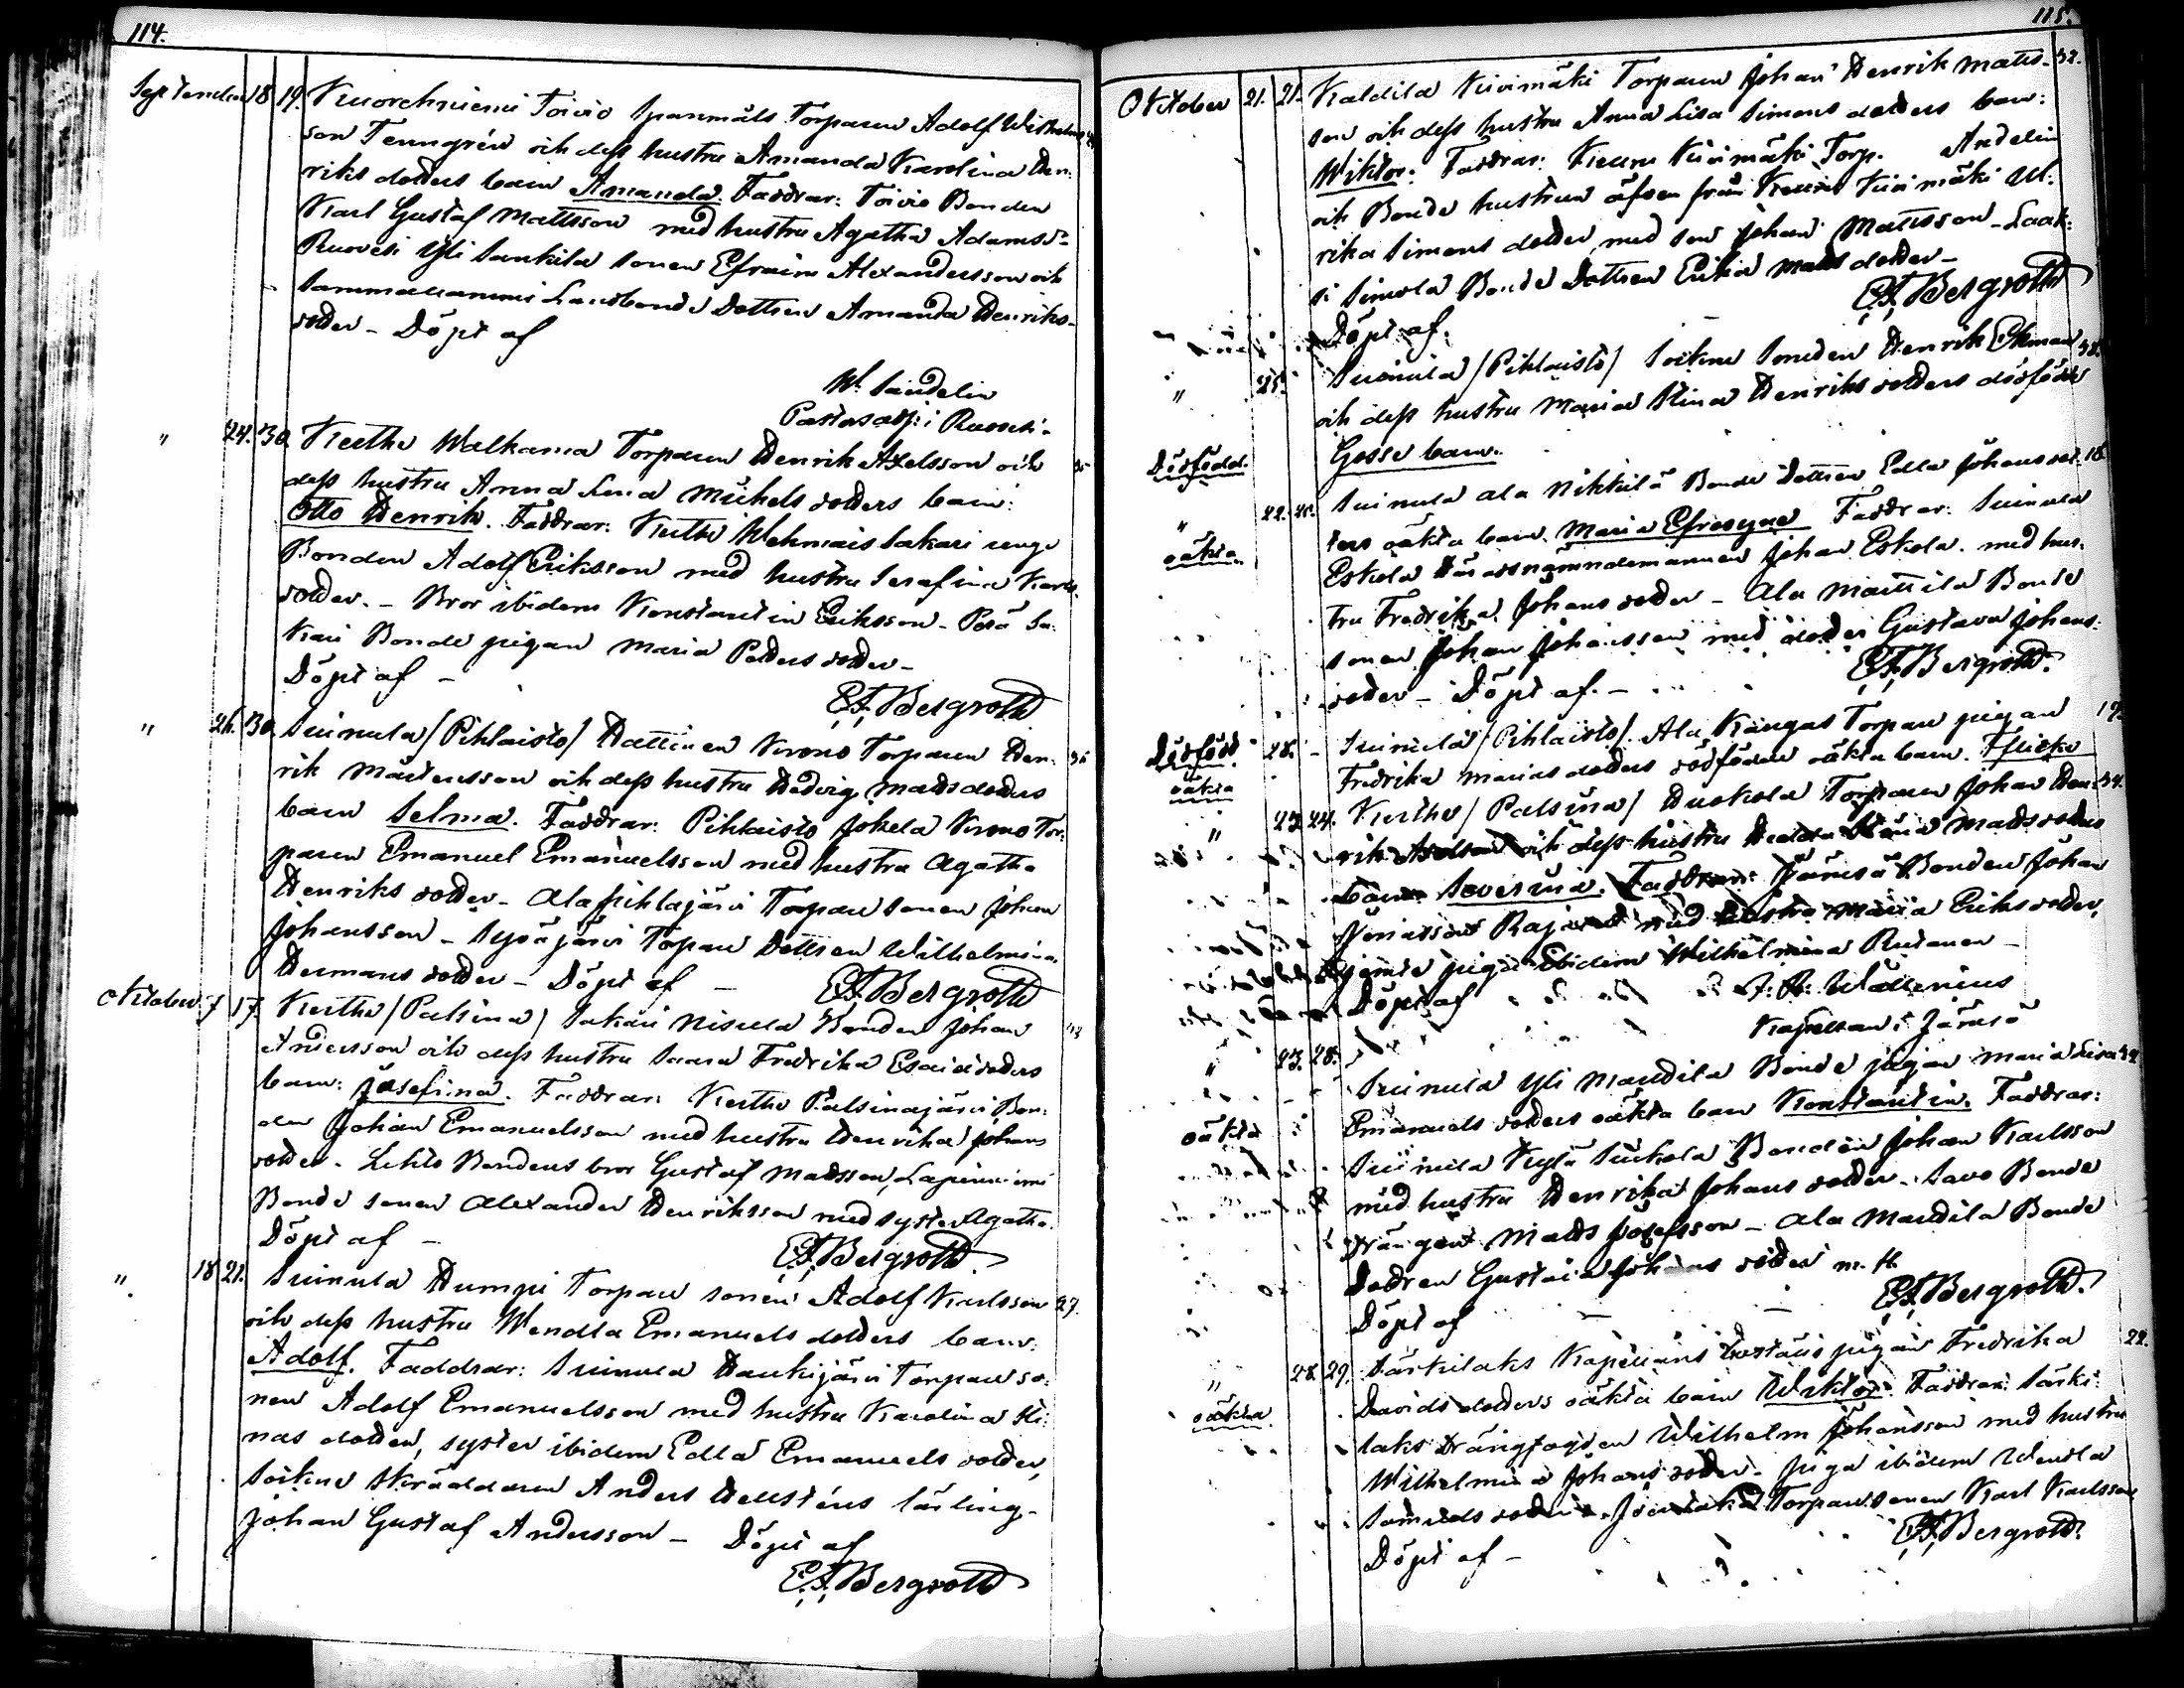 114.
September 18 19. Kuorehniemi Toivio Spanmåls Torparen Adolf Wilhelms
son Tenngrén och dess hustru Amanda Karolina Hen:
riks dotters barn Amanda. Faddrar: Toivio Bonden
Karl Gustaf Mattsson med hustru Agatha Adamsd:
Ruovesi Yli Sankila sonen Efraim Alexandersson och
Sammalammi Landbonde Dottren Amanda Henriks-
dotter - Döpt af
W. Sandelin
Pastorsadj: i Ruovesi.
" 24. 30. Kertte Walkama Torparen Henrik Axelsson och
dess hustru Anna Lena Mickels dotters barn:
Otto Henrik. Faddrar: Kertte Wehmais Sakari
Bonden Adolf Eriksson med hustru Serafina Karls
dotter. - Bror ibidem Konstantin Eriksson - Perä Sa:
kari Bonde pigan Maria Peders dotter -
Döpt af -
E. F. Bergroth
" 26. 30. Suinula /Pihlaisto/ Hattinen Krono Torparen Hen: 36
rik Mårtensson och dess hustru Hedvig Mattsdotters
barn Selma. Faddrar: Pihlaisto Jokela Krono Tor:
paren Emanuel Emanuelsson med hustru Agatha
Henriks dotter - Alapihlajärvi Torpare sonen Johan
Johansson - Syväjärvi Torpare Dottren Wilhelmina
Hermans dotter - Döpt af -
E. F. Bergroth
Oktober 7 17. Kertte /Palsina/ Sakari Nisula Bonden Johan
Andersson och dess hustru Saara Fredrika Esaiædotters
barn: Josefina. Faddrar: Kertte Palsinajärvi Bon:
den Johan Emanuelsson med hustru Henrika Johans
dotter. Lehto Bondens bror Gustaf Matsson, Lapinniemi
Bonde sonen Alexander Henriksson med syster Agatha.
Döpt af -
E. F. Bergroth
" 18 21. Suinula Humpi Torpare sonen Adolf Karlsson 27.
och dess hustru Wendla Emanuels dotters barn:
Adolf. Faddrar: Suinula Haukijärvi Torpare so:
nen Adolf Emanuelsson med hustru Karolina Sti:
nas dotter, syster ibidem Edla Emanuels dotter,
Sockne Skräddaren Anders Hellsténs lärling -
Johan Gustaf Andersson - Döpt af
E. F. Bergroth
115.
Oktober 21. 21. Kaldila Kivimäki Torparen Johan Henrik Matts- 32.
son och dess hustru Anna Lisa Simons dotters barn:
Wiktor. Faddrar: Keuru Kivimäki Torp. Andelin
och Bonde hustrun äfven från Keuru Kivimäki Ul:
rika Simons dotter med son Johan Mattsson - Laak:
si Simola Bonde Dottren Erika Matts dotter -
Döpt af.
E. F. Bergroth
" 25. Suinula /Pihlaisto/ Sockne Smeden Henrik Ekman 38.
och dess hustru Maria Stina Henriks dotters dödfödde
Dödfödd. Gosse barn.
" 22. 25. Suinula Ala Nikkilä Bonde Dottren Edla Johans dot: 18.
oäkta ters oäkta barn. Maria Efrosyne Faddrar: Suinula
Eskola Häradsnämndemannen Johan Eskola med hus.
tru Fredrika Johans dotter - Ala Mattila Bonde
sonen Johan Johansson med dotter Gustava Johans:
dotter - Döpt af. -
E. F. Bergroth.
Dödfödd oäkta 28. - Suinula /Pihlaisto/. Ala Kangas Torpare pigan 19.
Fredrika Marias dotters dödfödde oäkta barn. Flicka
" 23 24. Kertte /Palsina/ Huokola Torparen Johan Hen: 34.
rik Axelsson och dess hustru Hedda Maria Matts dotters
barn Severina. Faddrar: Jämsä Bonden Johan
Jönasson Raj med hustru Maria Eriks dotter,
jemte piga ibidem Wilhelmina Rutanen -
Döpt af
Wallenius
Kapellan i Jämsä
" 23. 28. Suinula Yli Mandila Bonde pigan Maria Lisa 32
oäkta Emanuels dotters oäkta barn Konstantin. Faddrar:
Suinula Kylä Suikola Bonden Johan Karlsson
med hustru Henrika Johans dotter. Savo Bonde
drängen Matts Josefsson - Ala Mandila Bonde
Dottren Gustava Johans dotter m. fl.
Döpt af
E. F. Bergroth.
" 28. 29. Särkilaks Kapellans Bostäls pigan Fredrika 22.
oäkta Davids dotters oäkta barn Wiktor. Faddrar: Särki:
laks Drängfogden Wilhelm Johansson med hustru
Wilhelmina Johans dotter. Piga ibidem Wendla
Samuels dotter. Torpare sonen Karl Karlsson
Döpt af -
E. F. Bergroth.